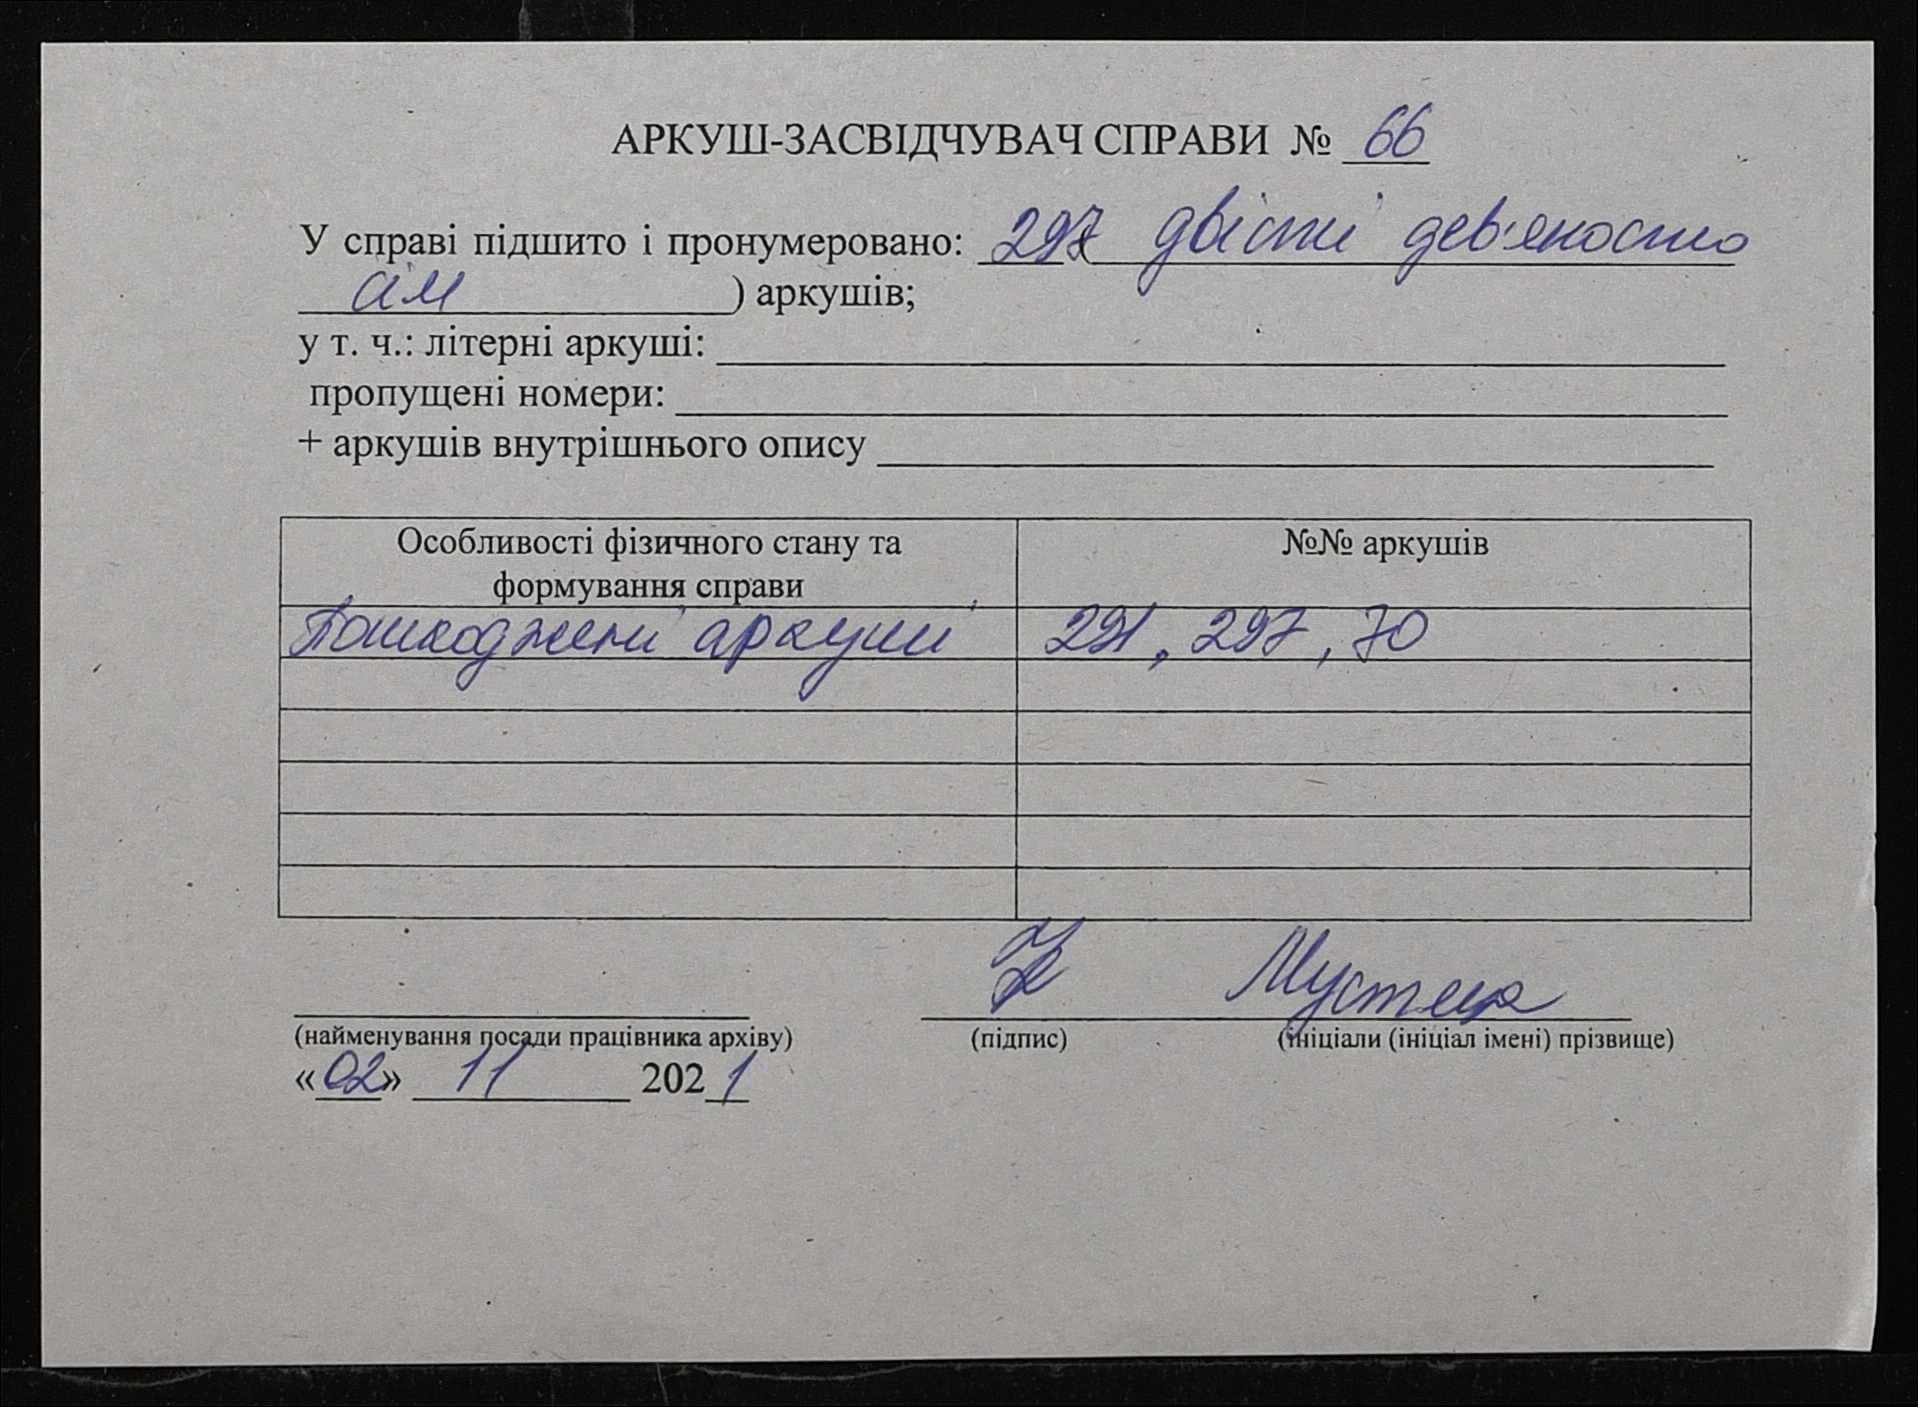 АРКУШ-ЗАСВІДЧУВАЧ СПРАВИ № 66
У справі підшито і пронумеровано: 297 ( двісті дев'яносто
сім ) аркушів;
у т. ч.: літерні аркуші:
пропущені номери:
+ аркушів внутрішнього опису
Особливості фізичного стану та
формування справи
№№ аркушів
Пошкоджені аркуші 291, 297, 70
Мустеца
(найменування посади працівника архіву) (підпис) (ініціали (ініціал імені) прізвище)
«02» 11 2021